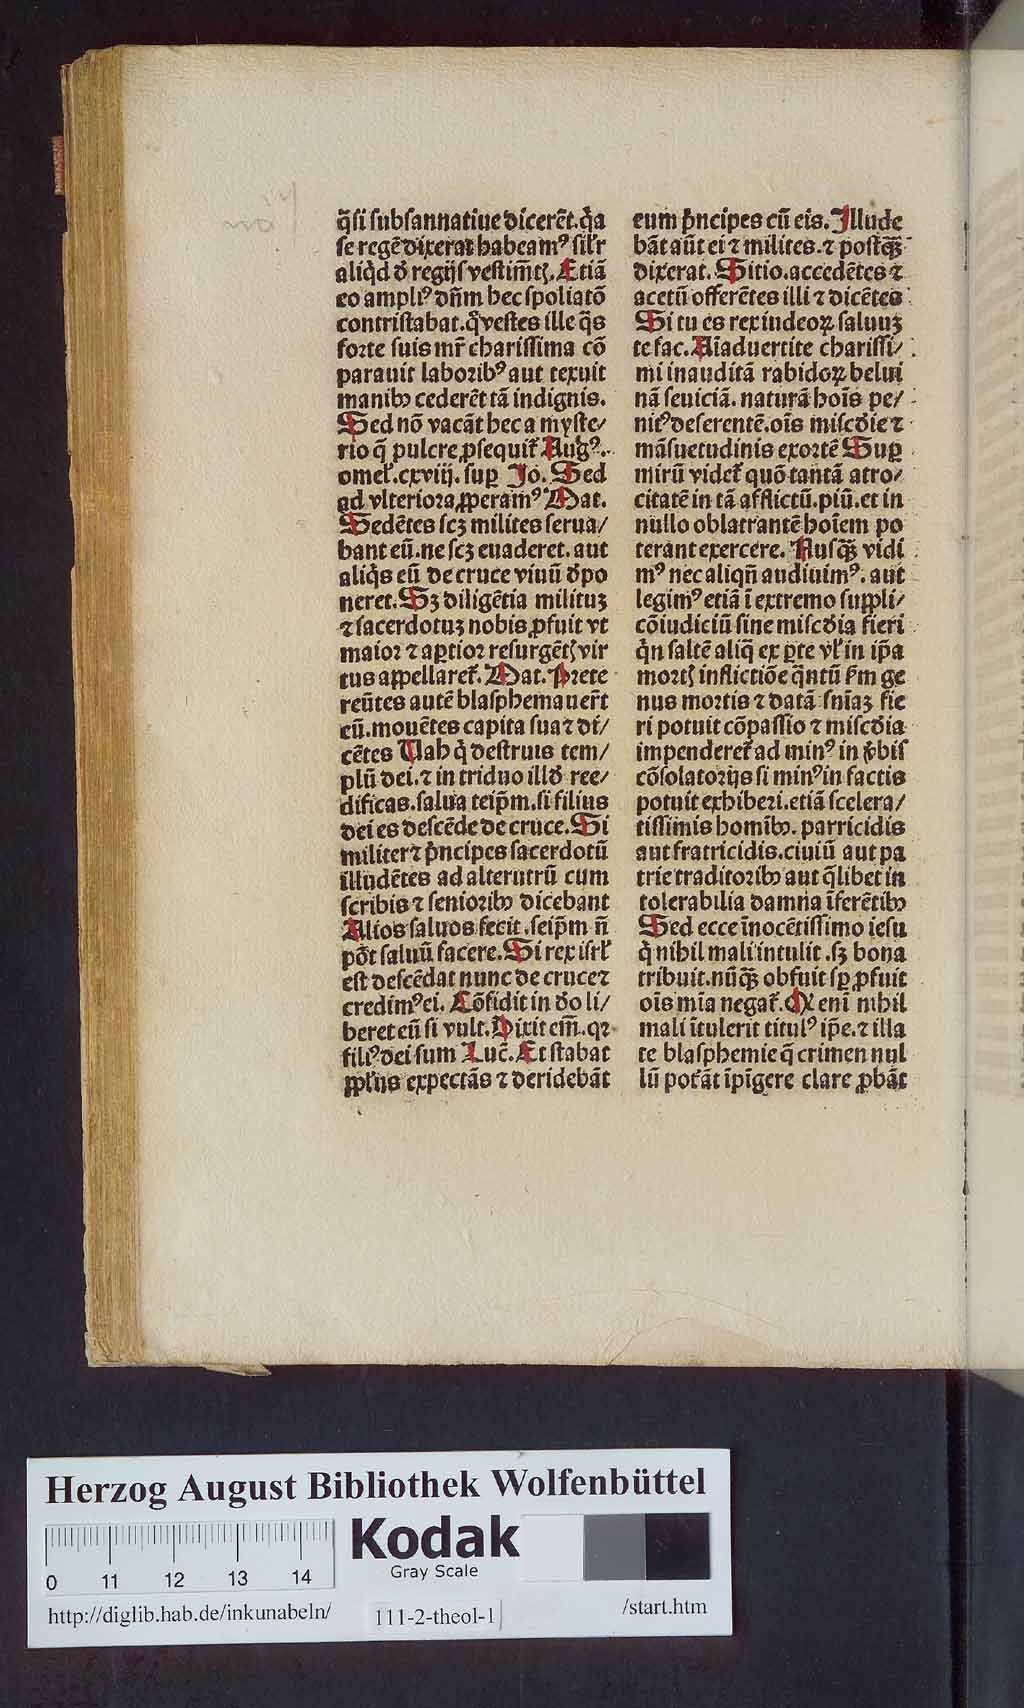 q̃si subsannatiue dicerēt. q̇a
se regē dixerat habeamꝰ sil'r
aliq̇d ð regijs vestim̄tꝭ. Etiā
eo ampliꝰ dn̄m hec spoliatō
contristabat. q̇ vestes ille q̄s
forte suis mr̄ charissima cō
parauit laboribꝰ aut texuit
manibꝫ cederēt tā indignis.
Sed nō vacāt hec a myste/
rio q̄ pulcre ꝓsequit᷑ Augꝰ.
omel'. cxviij. suꝑ Jo. Sed
ad vlteriora ꝓꝑeramꝰ Mat.
Sedētes scꝫ milites serua/
bant eū. ne scꝫ euaderet. aut
aliq̇s eū de cruce viuū ðpo
neret. Sꝫ diligētia milituꝫ
⁊ sacerdotuꝫ nobis ꝓfuit vt
maior ⁊ aꝑtior resurgētꝭ vir
tus appellaret᷑. Mat. Prete
reūtes autē blasphemauer̄t
eū. mouētes capita sua ⁊ di/
cētes Uah q̇ destruis tem/
plū dei. ⁊ in triduo illð ree/
dificas. salua teip̄m. si filius
dei es descēde de cruce. Si
militer ⁊ p̄ncipes sacerdotū
illudētes ad alterutrū cum
scribis ⁊ senioribꝫ dicebant
Alios saluos fecit. seip̄m n̄
pōt saluū facere. Si rex isrl'
est descēdat nunc de cruce ⁊
credimꝰ ei. Cōfidit in ðo li/
beret eū si vult. Dixit em̄. qꝛ
filiꝰ dei sum Luc̄. Et stabat
ppl'us expectās ⁊ deridebāt
eum p̄ncipes cū eis. Illude
bāt aūt ei ⁊ milites. ⁊ postq̄ꝫ
dixerat. Sitio. accedētes ⁊
acetū offerētes illi ⁊ dicētes
Si tu es rex iudeoꝝ saluuꝫ
te fac. Aīaduertite charissi/
mi inauditā rabidoꝝ belui
nā seuiciā. naturā hoīs pe/
nitꝰ deserentē. oīs miscðie ⁊
māsuetudinis exortē Suꝑ
mirū videt᷑ quō tantā atro/
citatē in tā afflictū. piū. et in
nullo oblatrantē hoīem po
terant exercere. Nusq̄ꝫ vidi
mꝰ nec aliqn̄ audiuimꝰ. aut
legimꝰ etiā ī extremo suppli/
cō iudiciū sine miscðia fieri
q̇n saltē aliq̄ ex ꝑte vl' in ip̄a
mortꝭ inflictiōe q̄ntū ẜm ge
nus mortis ⁊ datā sn̄iaꝫ fie
ri potuit cōpassio ⁊ miscðia
impenderet᷑ ad minꝰ in v̇bis
cōsolatorijs si minꝰ in factis
potuit exhiberi. etiā scelera/
tissimis homībꝫ. parricidis
aut fratricidis. ciuiū aut pa
trie traditoribꝫ aut q̄libet in
tolerabilia damna īferētibꝫ
Sed ecce īnocētissimo iesu
q̇ nihil mali intulit. sꝫ bona
tribuit. nūq̄ꝫ obfuit sꝑ ꝓfuit
oīs mīa negat᷑. Qꝛ enī nihil
mali ītulerit titulꝰ ip̄e. ⁊ illa
te blasphemie q̄ crimen nul
lū poterāt īpīgere clare ꝓbāt
Herzog August Bibliothek Wolfenbüttel
0 11 12 13 14
Kodak
Gray Scale
http://diglib.hab.de/inkunabeln/
111-2-theol-1
/start.htm